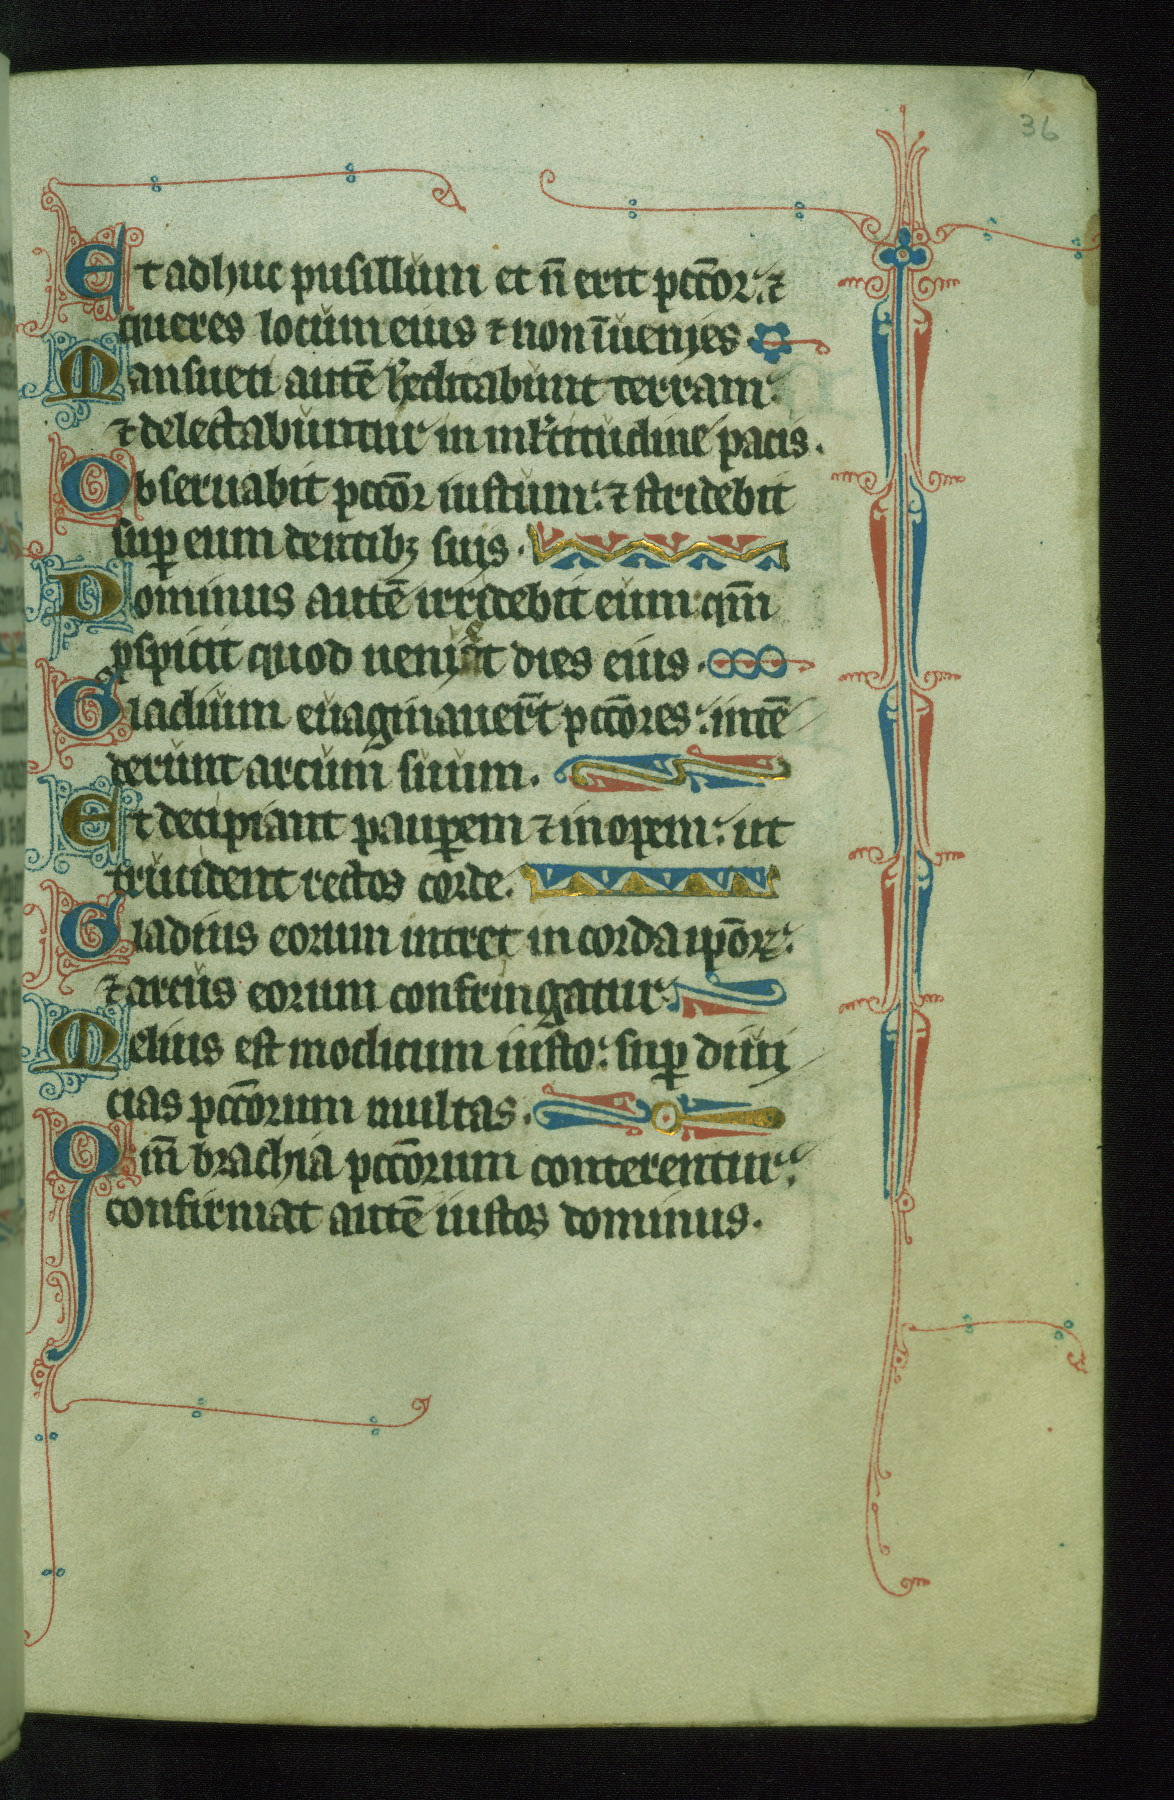 36
Et adhuc pusillum et n̄ erit pcc̄or: ⁊
queres locum eius ⁊ non īuenies.
Mansueti autē h̄editabunt terram:
⁊ delectabuntur in ml̄titudine pacis.
Obseruabit pcc̄or iustum: ⁊ stridebit
sup̄ eum dentibꝫ suis.
Dominus autē irridebit eum: qm̄
pspicit quod ueniet dies eius.
Gladium euaginauer̄t pcc̄ores: intē
derunt arcum suum.
Et decipiant paup̄em ⁊ inopem: ut
trucident rectos corde.
Gladius eorum intret in corda ip̄oꝝ:
⁊ arcus eorum confringatur.
Melius est modicum iusto: sup̄ diui
cias pcc̄orum multas.
Qm̄ brachia pcc̄orum conterentur:
confirmat autē iustos dominus.